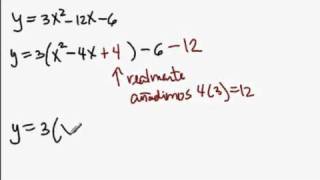 y = 3x² - 12x - 6
y = 3(x² - 4x + 4) - 6 - 12
↑ realmente
añadimos 4(3) = 12
y = 3(